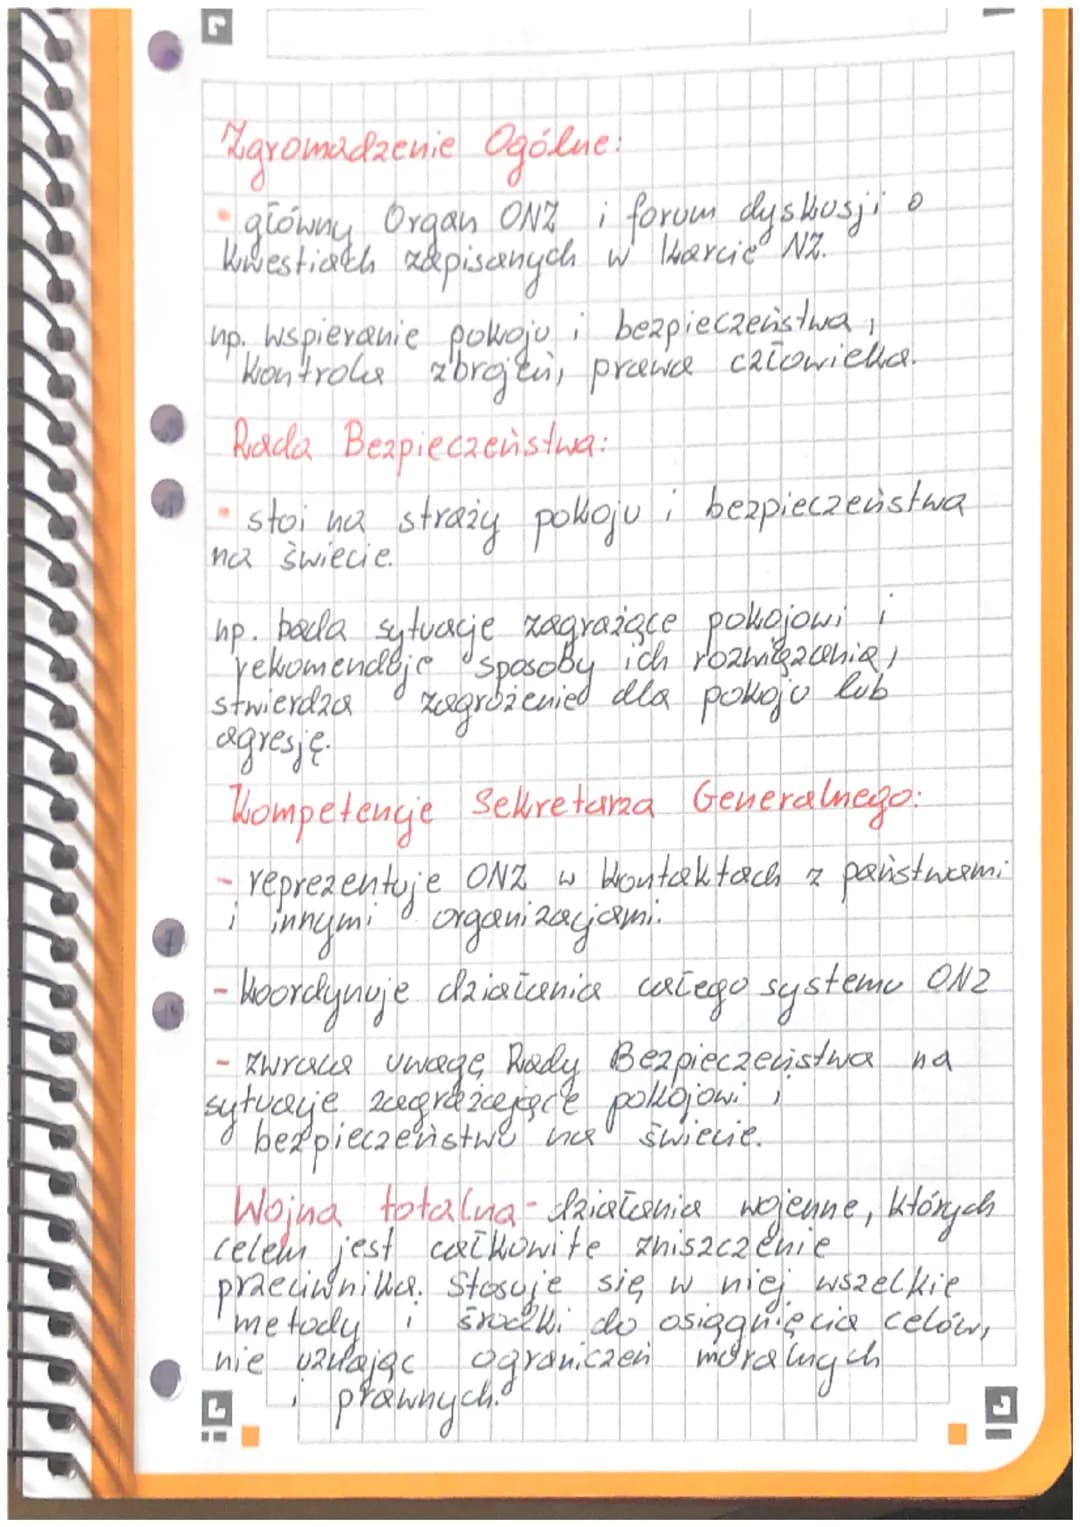 Zgromadzenie Ogólne:
• główny Organ ONZ i forum dyskusji o
kwestiach zapisanych w Karcie NZ.
np. wspieranie pokoju i bezpieczeństwa,
kontrola zbrojeń, prawa człowieka.
Rada Bezpieczeństwa:
• stoi na straży pokoju i bezpieczeństwa
na świecie.
np. bada sytuacje zagrażące pokojowi i
rekomenduje sposoby ich rozwiązania,
stwierdza zagrożenie dla pokoju lub
agresję.
Kompetencje Sekretarza Generalnego:
- reprezentuje ONZ w kontaktach z państwami
i innymi organizacjami.
- koordynuje działania całego systemu ONZ
- zwraca uwagę Rady Bezpieczeństwa na
sytuacje zagrażające pokojowi i
bezpieczeństwu na świecie.
Wojna totalna - działania wojenne, których
celem jest całkowite zniszczenie
przeciwnika. Stosuje się w niej wszelkie
metody i środki do osiągnięcia celów,
nie uznając ograniczeń moralnych
i prawnych.